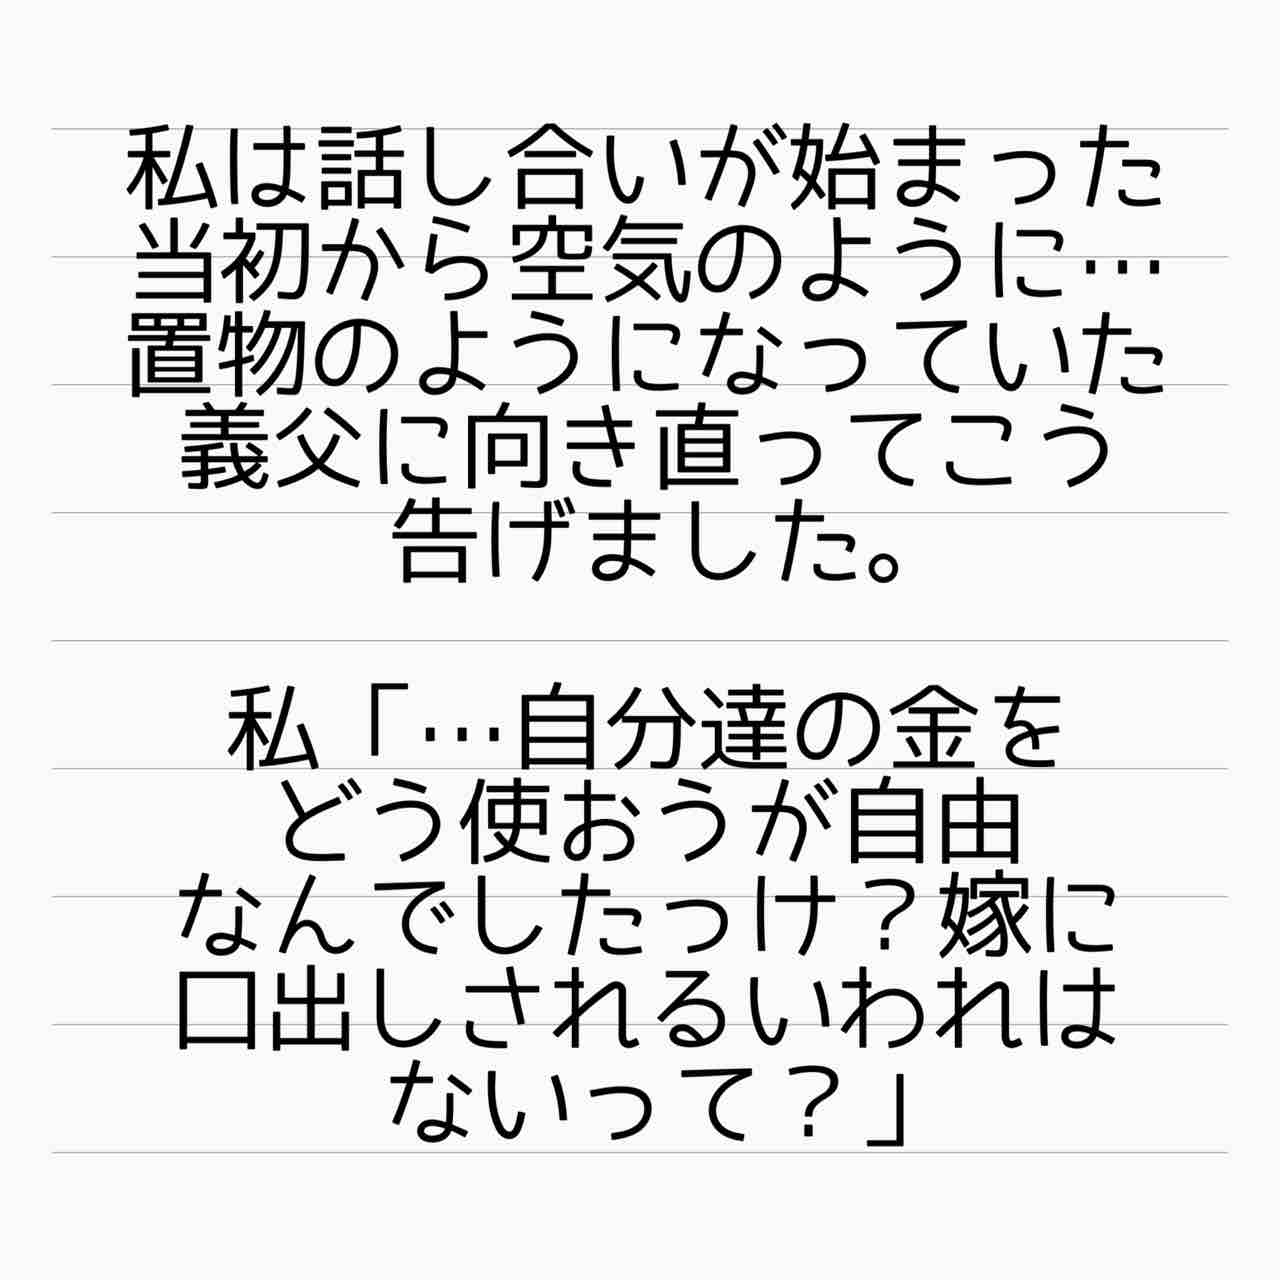 私は話し合いが始まった
当初から空気のように…
置物のようになっていた
義父に向き直ってこう
告げました。
私「…自分達の金を
どう使おうが自由
なんでしたっけ？嫁に
口出しされるいわれは
ないって？」